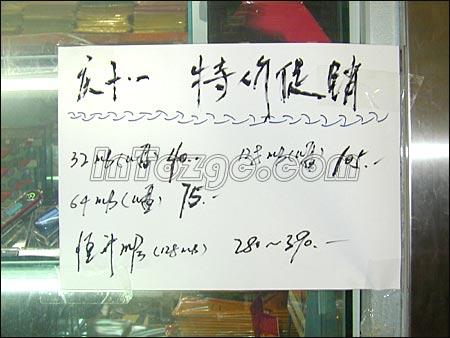 庆十·一 特价促销
32MB(U盘) 40.- 128MB(U盘) 105.-
64MB(U盘) 75.-
恒升MP3(128MB) 280～390.-
InTozgc.com